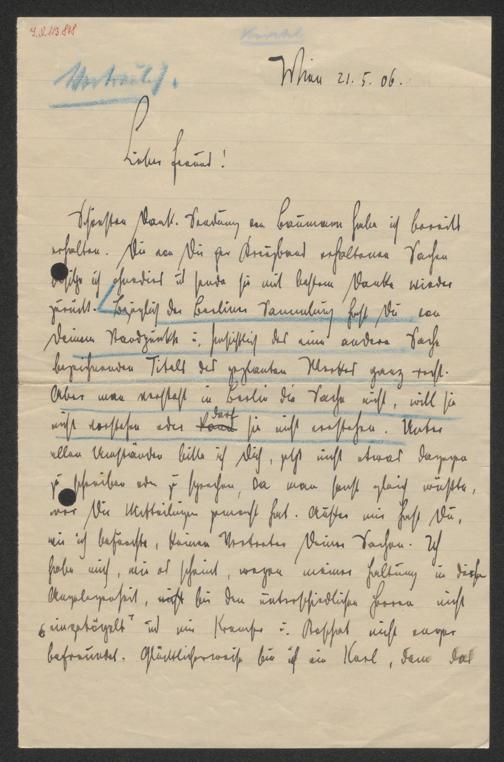 Vertraulich.
Wien 21. 5. 06.
Lieber Freund!
Schönsten Dank. Sendung von Baumann habe ich bereits
erhalten. Die von Dir per Kreuzband erhaltenen Sachen
besitze ich ohnedies und sende sie mit bestem Danke wieder
zurück. Bezüglich der Berliner Sammlung hast Du von
Deinem Standpunkte u. hinsichtlich des eine andere Sache
bezeichnenden Titels des geplanten Werkes ganz recht.
Aber man versteht in Berlin die Sache nicht, will sie
nicht verstehen oder darf sie nicht verstehen. Unter
allen Umständen bitte ich Dich, jetzt nicht etwas dagegen
zu schreiben oder zu sprechen, da man sonst gleich wüßte,
wer Dir Mitteilungen gemacht hat. Außer mir hast Du,
wie ich befürchte, keinen Vertreter Deiner Sachen. Ich
habe mich, wie es scheint, wegen meiner Haltung in dieser
Angelegenheit, bei den unterschiedlichen Herren nicht
"eingetegelt" und mir Kremser u. nicht enger
befreundet. Glücklicherweise bin ich ein Karl, dem das